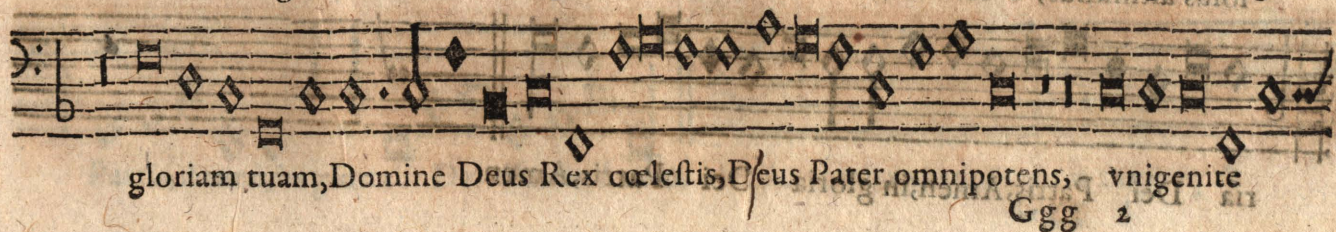 gloriam tuam,Domine Deus Rex cœleſtis,Deus Pater omnipotens, vnigenite
Ggg 2